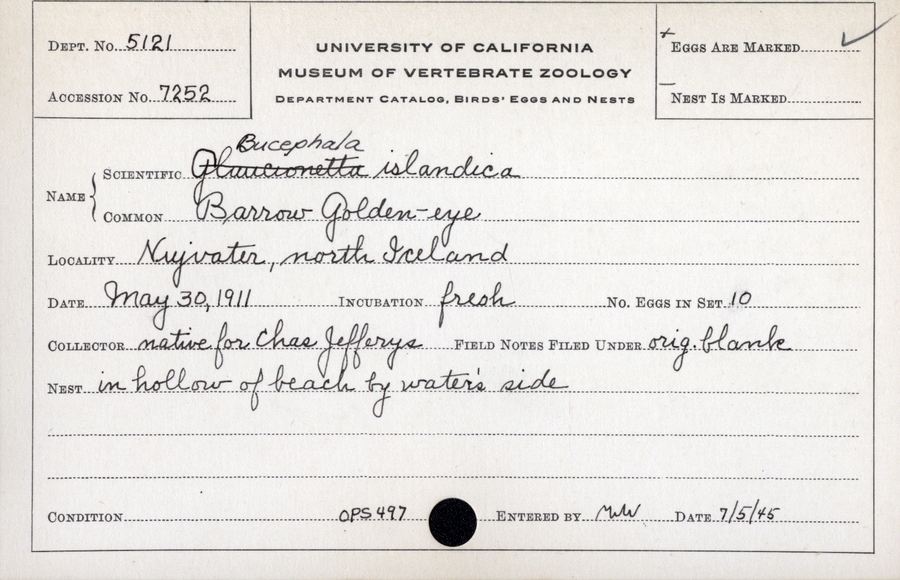 DEPT. No. 5121
ACCESSION No. 7252
UNIVERSITY OF CALIFORNIA
MUSEUM OF VERTEBRATE ZOOLOGY
DEPARTMENT CATALOG, BIRDS' EGGS AND NESTS
+ EGGS ARE MARKED ✓
— NEST IS MARKED
Bucephala
NAME { SCIENTIFIC Glaucionetta islandica
COMMON Barrow Golden-eye
LOCALITY Nujvater, north Iceland
DATE May 30, 1911 INCUBATION fresh No. EGGS IN SET 10
COLLECTOR native for Chas Jefferys FIELD NOTES FILED UNDER orig. blank
NEST in hollow of beach by water's side
CONDITION OPS 497 ENTERED BY DATE 7/5/45